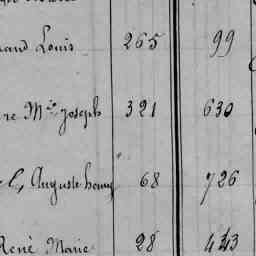 Louis 265 99
re Mie Joseph 321 630
Auguste 68 726
René Marie 28 443